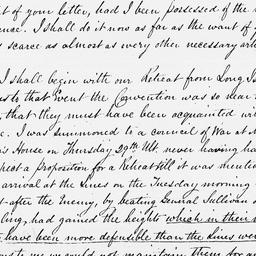 pt of your letter, had I been possessed of the
ence. I shall do it now as far as the want of
s scarce as almost as every other necessary arti
I shall begin with our Retreat from Long Is
us to that Event the Convention was so near
, that they must have been acquainted wi
e. I was summoned to a council of War at M
's House on Thursday 29th Ult. never having ha
heat a proposition for Retreat till it was mention
arrival at the Lines on the Tuesday morning
t after the Enemy, by beating General Sullivan
ling, had gained the heights which in their
have been more defensible than the Lines were
we would not maintain them for an